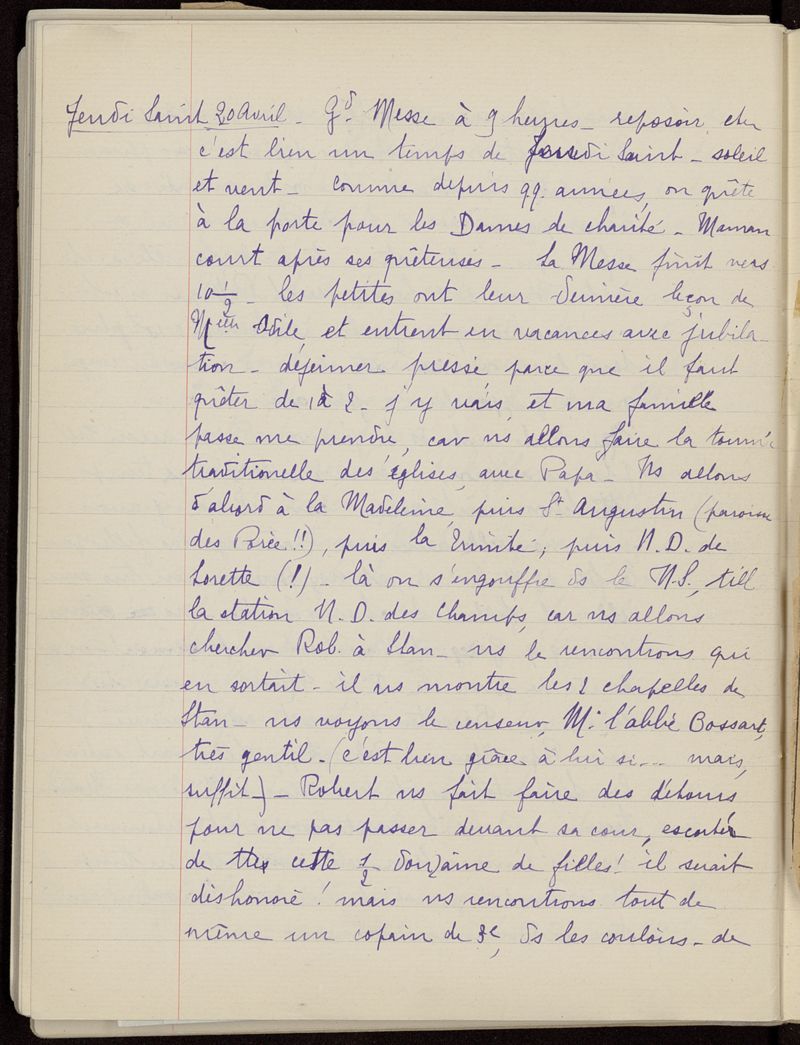 Jeudi Saint 20 Avril - Gd. Messe à 9 heures - reposoir, etc
c'est bien un temps de Jeudi Saint - soleil
et vent - comme depuis 99. années, on quête
à la porte pour les Dames de charité - Maman
court après ses quêteuses - La Messe finit vers
10 1/2 - les petites ont leur dernière leçon de
Melle Odile, et entrent en vacances avec jubila-
tion - déjeuner pressé, parce que il faut
quêter de 1 à 2 - j'y vais, et ma famille
passe me prendre, car ns allons faire la tournée
traditionelle des églises, avec Papa - Ns allons
d'abord à la Madeleine, puis St Augustin (paroisse
des Porée!!), puis la Trinité, puis N.D. de
Lorette (!) - là on s'engouffre ds le N.S., till
la station N.D. des Champs, car ns allons
chercher Rob. à Stan - ns le rencontrons qui
en sortait - il ns montre les 2 chapelles de
Stan - ns voyons le censeur, M. l'abbé Bossart,
très gentil - (c'est bien grâce à lui si... mais,
suffit -) - Robert ns fait faire des détours
pour ne pas passer devant sa cour, escorté
de cette 1/2 douzaine de filles! il serait
déshonoré! mais ns rencontrons tout de
même un copain de 3e, ds les couloirs - de